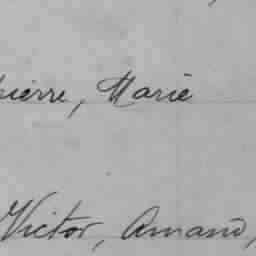 pierre, Marie
Victor, Amand,